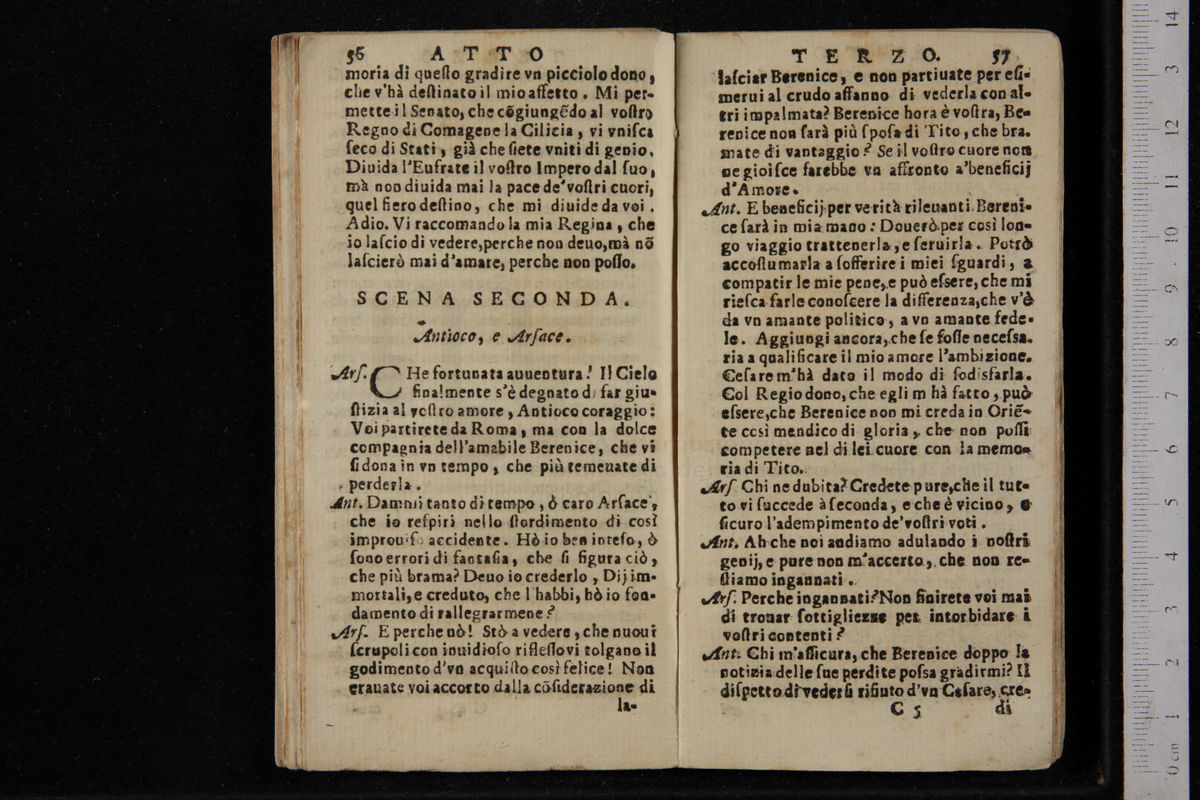 56 ATTO
moria di queſto gradire vn picciolo dono,
che v'hà deſtinato il mio affetto. Mi per-
mette il Senato, che cõgiungẽdo al voſtro
Regno di Comagene la Cilicia, vi vniſca
ſeco di Stati, già che ſiete vniti di genio.
Diuida l'Eufrate il voſtro Impero dal ſuo,
mà non diuida mai la pace de'voſtri cuori,
quel fiero deſtino, che mi diuide da voi.
Adio. Vi raccomando la mia Regina, che
io laſcio di vedere, perche non deuo, mà nõ
laſcierò mai d'amare, perche non poſſo.
SCENA SECONDA.
Antioco, e Arſace.
Arſ. CHe fortunata auuentura! Il Cielo
finalmente s'è degnato di far giu-
ſtizia al voſtro amore, Antioco coraggio:
Voi partirete da Roma, ma con la dolce
compagnia dell'amabile Berenice, che vi
ſi dona in vn tempo, che più temeuate di
perderla.
Ant. Dammi tanto di tempo, ò caro Arſace,
che io reſpiri nello ſtordimento di così
improuiſo accidente. Hò io ben inteſo, ò
ſono errori di fantaſia, che ſi figura ciò,
che più brama? Deuo io crederlo, Dij im-
mortali, e creduto, che l'habbi, hò io fon-
damento di rallegrarmene?
Arſ. E perche nò! Stò a vedere, che nuoui
ſcrupoli con inuidioſo rifleſſo vi tolgano il
godimento d'vn acquiſto così felice! Non
erauate voi accorto dalla cõſiderazione di
la-
TERZO. 57
laſciar Berenice, e non partiuate per eſi-
merui al crudo affanno di vederla con al-
tri impalmata? Berenice hora è voſtra, Be-
renice non ſarà più ſpoſa di Tito, che bra-
mate di vantaggio? Se il voſtro cuore non
ne gioiſce farebbe vn affronto a'beneficij
d'Amore.
Ant. E beneficij per verità rileuanti. Bereni-
ce ſarà in mia mano: Douerò per così lon-
go viaggio trattenerla, e ſeruirla. Potrò
accoſtumarla a ſofferire i miei ſguardi, a
compatir le mie pene, e può eſsere, che mi
rieſca farle conoſcere la differenza, che v'è
da vn amante politico, a vn amante fede-
le. Aggiungi ancora, che ſe foſſe neceſsa-
ria a qualificare il mio amore l'ambizione.
Ceſare m'hà dato il modo di ſodisfarla.
Col Regio dono, che egli m hà fatto, può
eſsere, che Berenice non mi creda in Oriẽ-
te così mendico di gloria, che non poſſi
competere nel di lei cuore con la memo-
ria di Tito.
Arſ Chi ne dubita? Credete pure, che il tut-
to vi ſuccede à ſeconda, e che è vicino, e
ſicuro l'adempimento de'voſtri voti.
Ant. Ah che noi andiamo adulando i noſtri
genij, e pure non m'accerto, che non re-
ſtiamo ingannati.
Arſ. Perche ingannati? Non finirete voi mai
di trouar ſottigliezze per intorbidare i
voſtri contenti?
Ant. Chi m'aſſicura, che Berenice doppo la
notizia delle ſue perdite poſsa gradirmi? Il
diſpetto di vederſi rifiuto d'vn Ceſare, cre-
C 5 di
0 cm 1 2 3 4 5 6 7 8 9 10 11 12 13 14
1 2 3